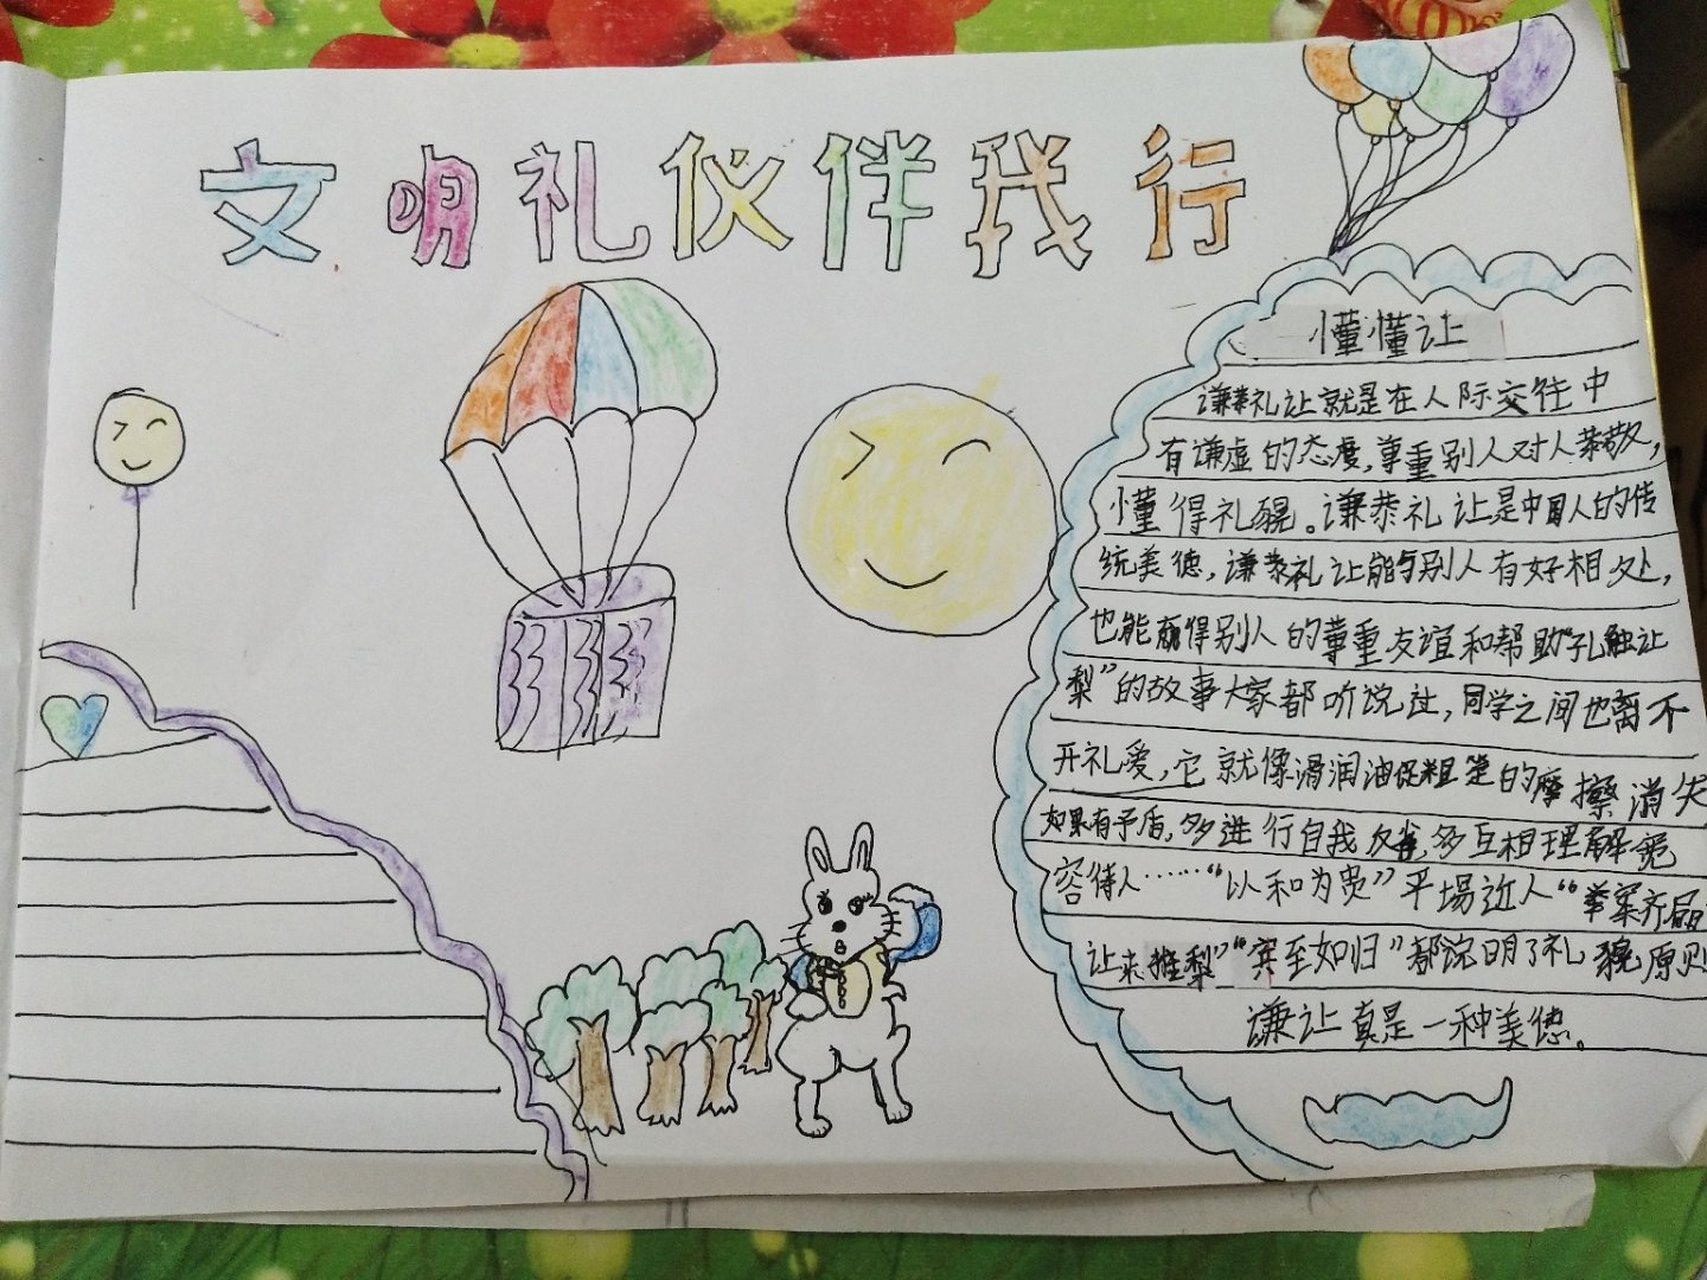 文明礼仪伴我行
懂懂让
谦恭礼让就是在人际交往中
有谦虚的态度,尊重别人对人恭敬,
懂得礼貌。谦恭礼让是中国人的传
统美德,谦恭礼让能与别人有好相处,
也能赢得别人的尊重友谊和帮助“孔融让
梨”的故事大家都听说过,同学之间也离不
开礼爱,它就像滑润油促粗笨的摩擦消失
如果有矛盾,多进行自我反省,多互相理解宽
容待人……“以和为贵”平場近人“举案齐眉
让来推梨”“宾至如归”都说明了礼貌原则
谦让真是一种美德。